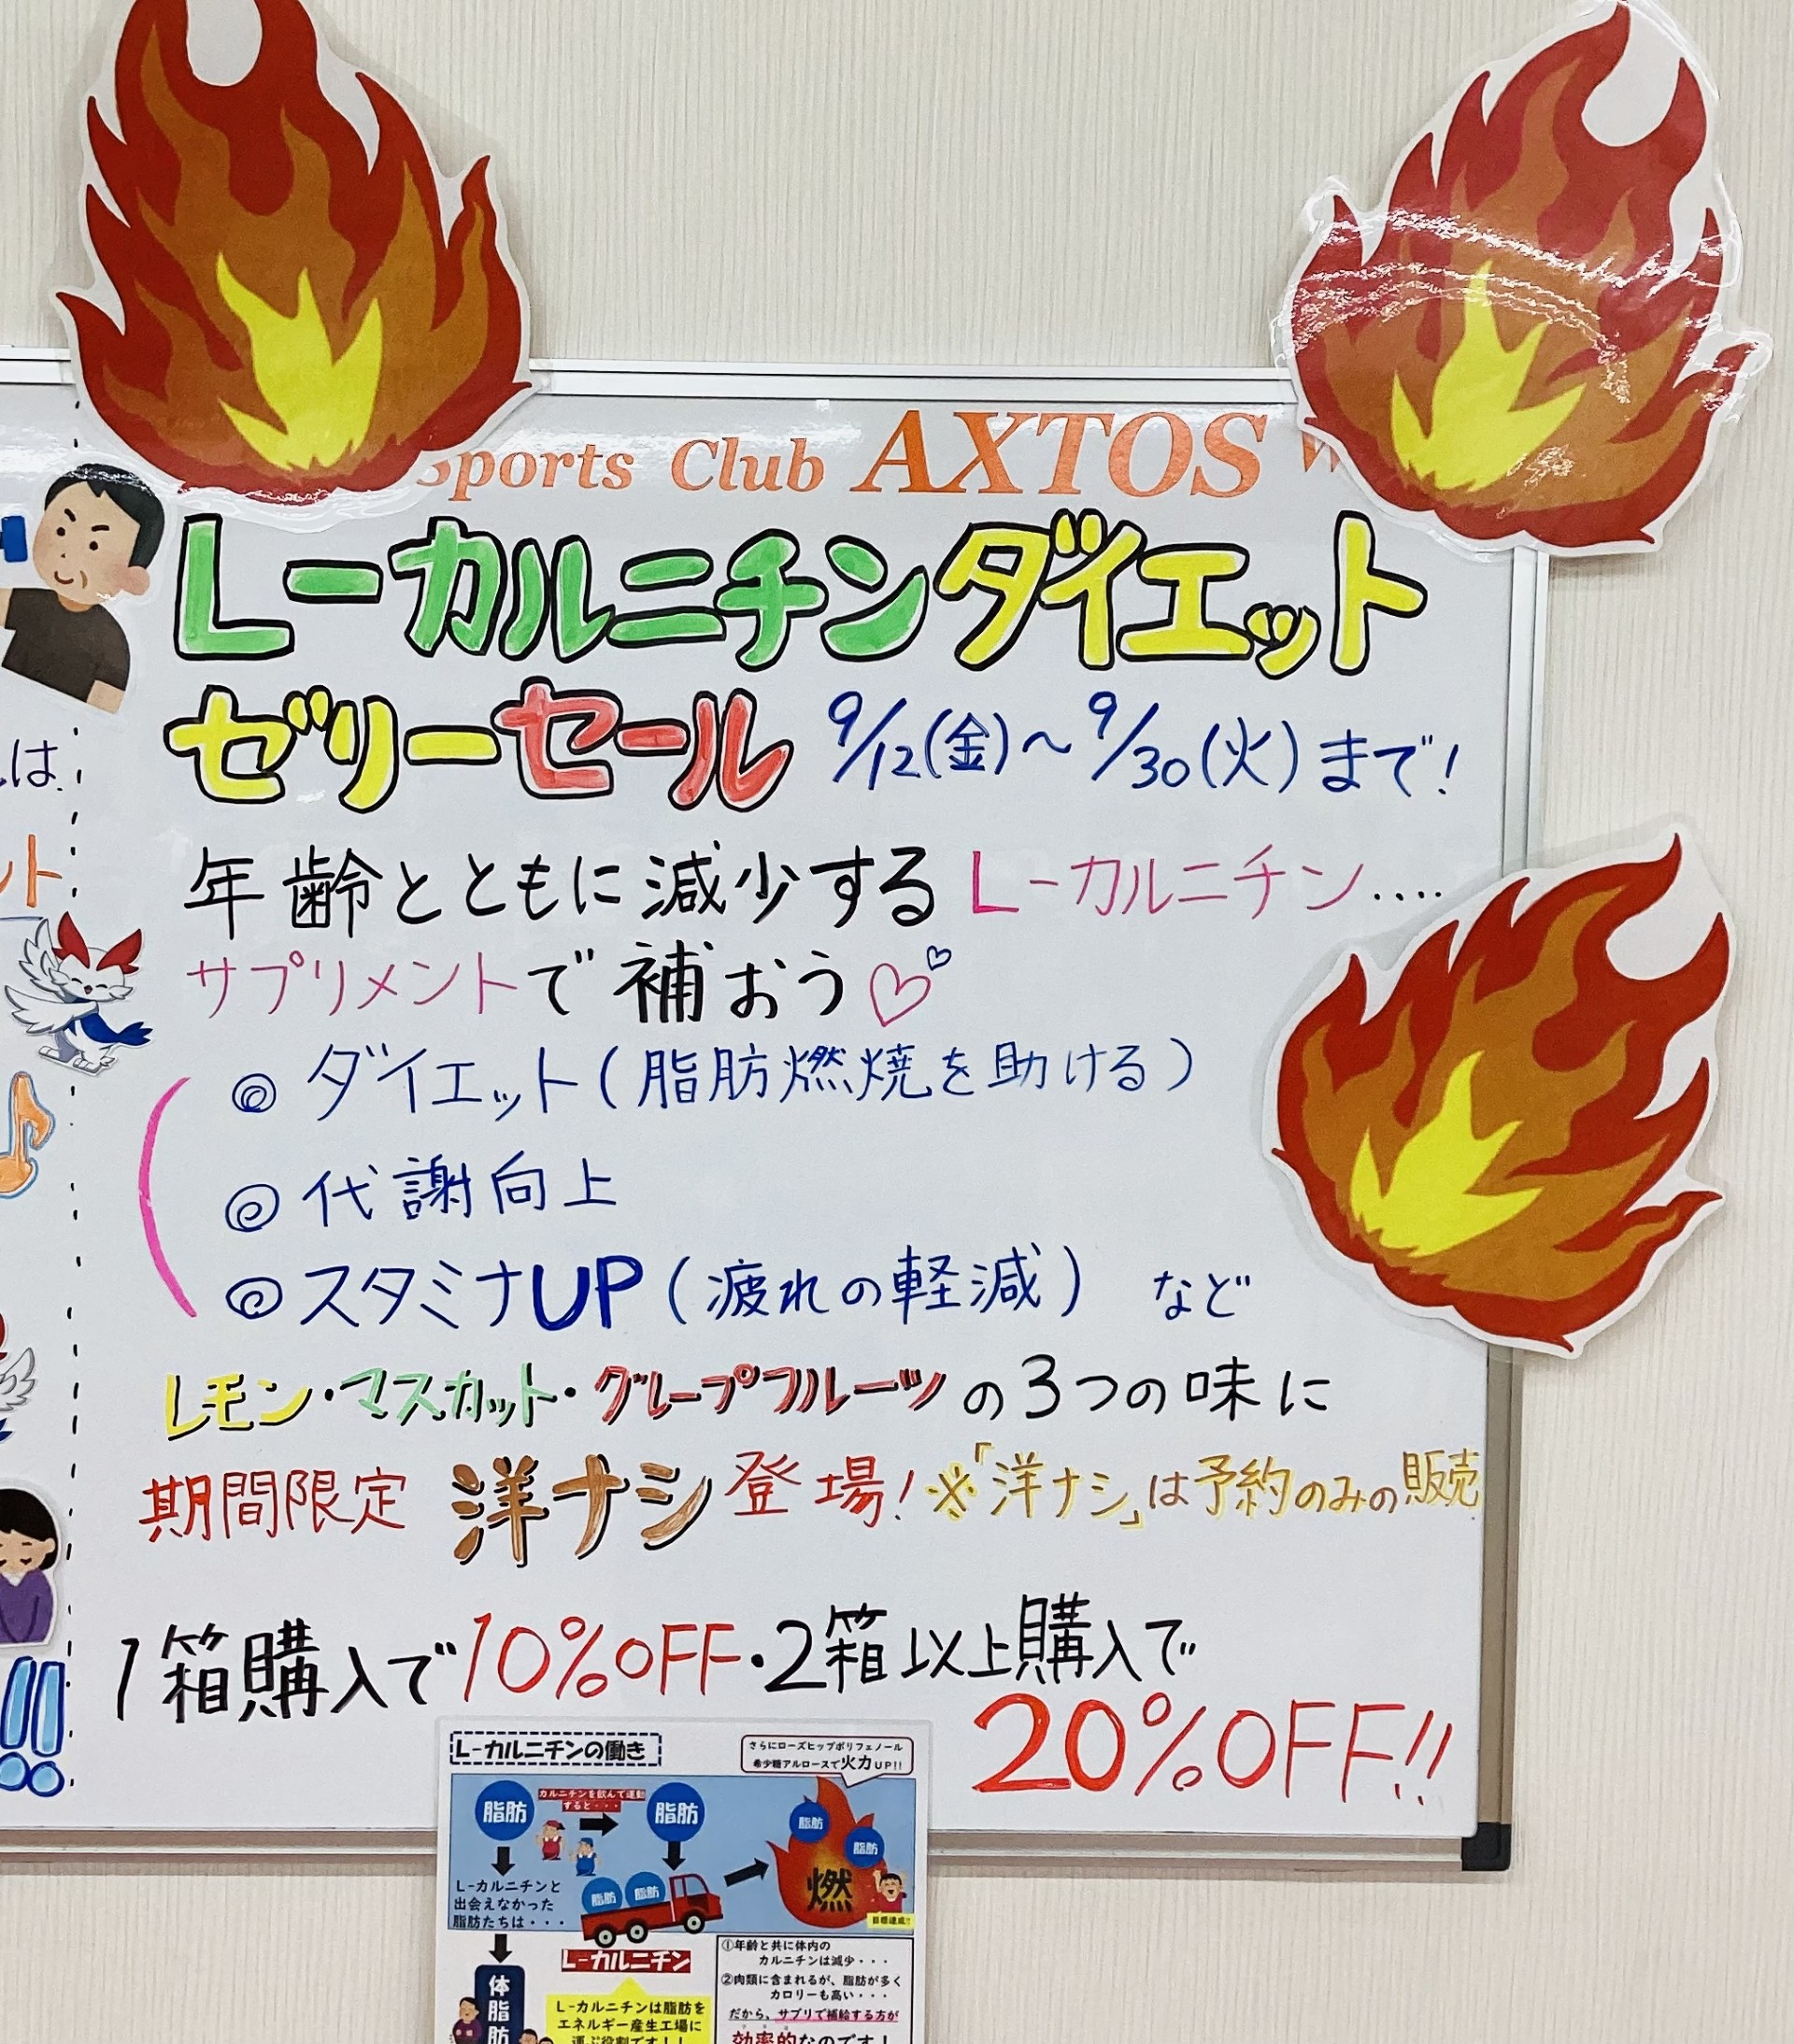 Sports Club AXTOS
L-カルニチンダイエット
ゼリーセール 9/12(金)~9/30(火)まで!
年齢とともに減少するL-カルニチン....
サプリメントで補おう♡♡
◎ ダイエット(脂肪燃焼を助ける)
◎ 代謝向上
◎ スタミナUP(疲れの軽減) など
レモン・マスカット・グレープフルーツの3つの味に
期間限定 洋ナシ 登場! ※「洋ナシ」は予約のみの販売
1箱購入で10%OFF・2箱以上購入で
20%OFF!!
は
ット
!!
L-カルニチンの働き
さらにローズヒップポリフェノール
希少糖アルロースで火力UP!!
脂肪
カルニチンを飲んで運動
すると・・・
脂肪
脂肪
脂肪
脂肪
脂肪
燃
目標達成!!
L-カルニチンと
出会えなかった
脂肪たちは・・・
L-カルニチン
体脂肪
L-カルニチンは脂肪を
エネルギー産生工場に
運ぶ役割です!!
①年齢と共に体内の
カルニチンは減少・・・
②肉類に含まれるが、脂肪が多く
カロリーも高い・・・
だから、サプリで補給する方が
効率的なのです!